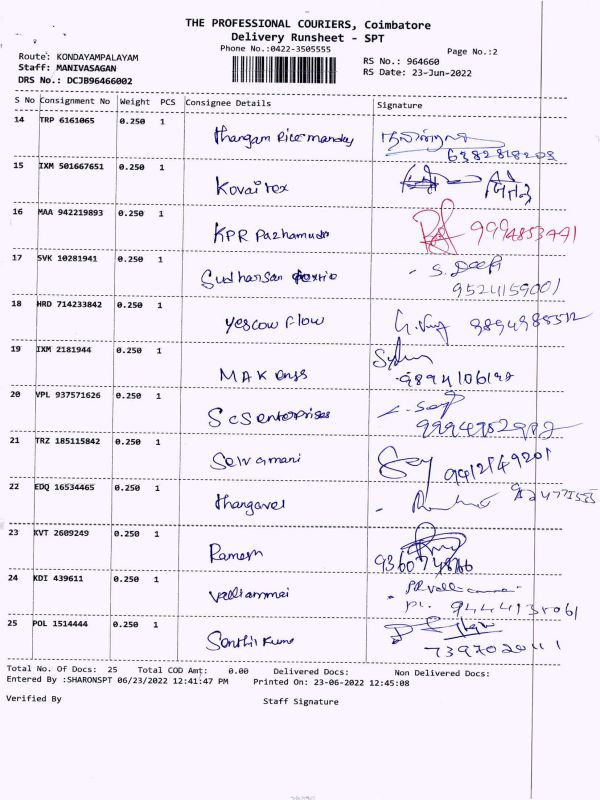 THE PROFESSIONAL COURIERS, Coimbatore
Delivery Runsheet - SPT
Phone No.:0422-3505555
Page No.:2
Route: KONDAYAMPALAYAM
Staff: MANIVASAGAN
DRS No.: DCJB96466002
RS No.: 964660
RS Date: 23-Jun-2022
S No Consignment No Weight PCS Consignee Details Signature
14 TRP 6161065 0.250 1
Thangam Rice mandy
6382818208
15 IXM 501667651 0.250 1
Kovai rex
16 MAA 942219893 0.250 1
KPR Pazhamudr 9994853441
17 SVK 10281941 0.250 1
Sudharsan
9524159001
18 HRD 714233842 0.250 1
Yescow Flow
19 IXM 2181944 0.250 1
MAK
20 VPL 937571626 0.250 1
S c S enterprises
21 TRZ 185115842 0.250 1
Selvamani
22 EDQ 16534465 0.250 1
Thangavel
23 KVT 2609249 0.250 1
Ramesh
24 KDI 439611 0.250 1
Valliammai
25 POL 1514444 0.250 1
Senthil Kumar
Total No. Of Docs: 25 Total COD Amt: 0.00 Delivered Docs: Non Delivered Docs:
Entered By :SHARONSPT 06/23/2022 12:41:47 PM Printed On: 23-06-2022 12:45:08
Verified By Staff Signature